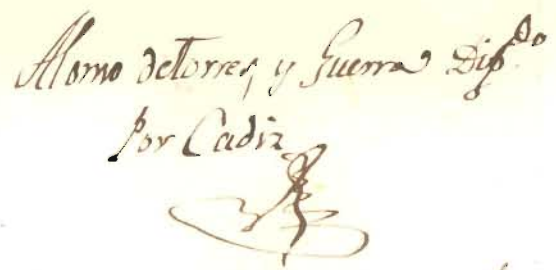 Alonso de Torres, y Guerra Dip.do
Por Cadiz